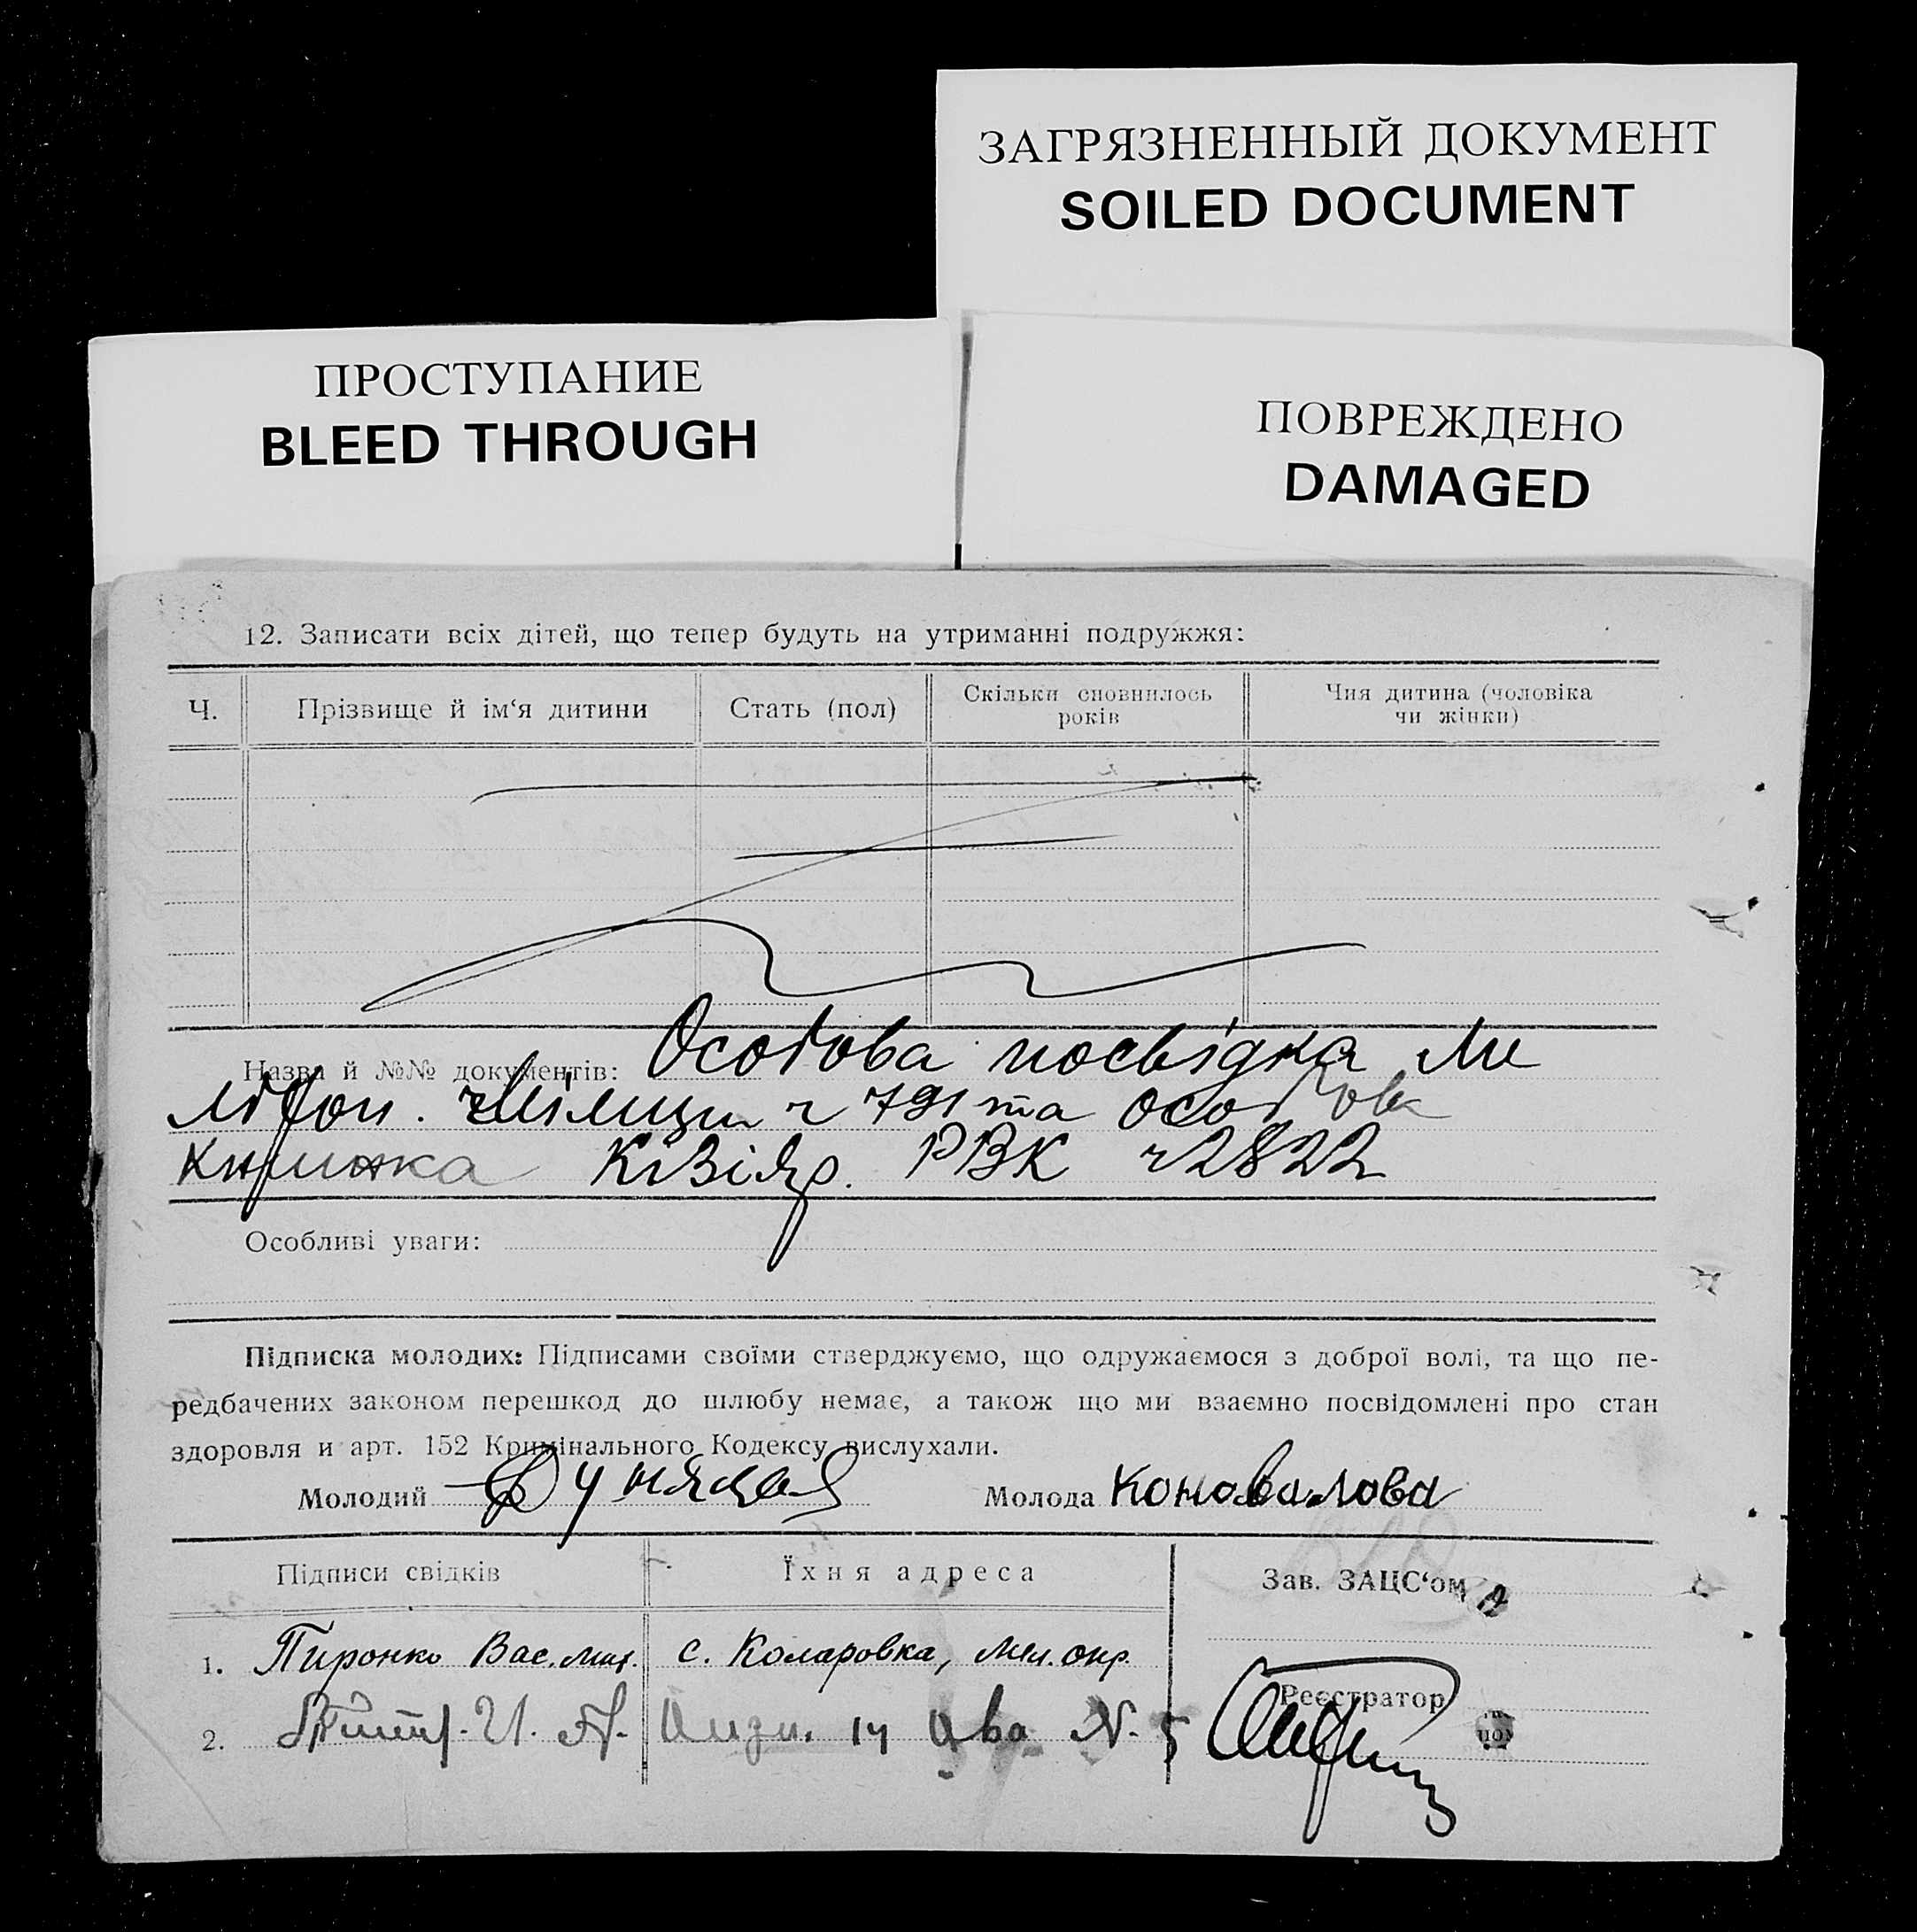 ЗАГРЯЗНЕННЫЙ ДОКУМЕНТ
SOILED DOCUMENT
ПРОСТУПАНИЕ
BLEED THROUGH
ПОВРЕЖДЕНО
DAMAGED
12. Записати всіх дітей, що тепер будуть на утриманні подружжя:
Ч. Прізвище й ім‘я дитини Стать (пол) Скільки сповнилось років Чия дитина (чоловіка чи жінки)
Назва й №№ документів: Особова посвідка Ме
літоп. Міліции ч 791 та особова
книжка Кізіляр. РВК ч 2822
Особливі уваги:
Підписка молодих: Підписами своїми стверджуємо, що одружаємося з доброї волі, та що пе-
редбачених законом перешкод до шлюбу немає, а також що ми взаємно посвідомлені про стан
здоровля и арт. 152 Кримінального Кодексу вислухали.
Молодий Молода Коновалова
Підписи свідків Їхня адреса Зав. ЗАЦС‘ом
1. Пиронко Вас. Мих. с. Коларовка, Мел. окр.
Реєстратор
2. И. А. 14 N. 5